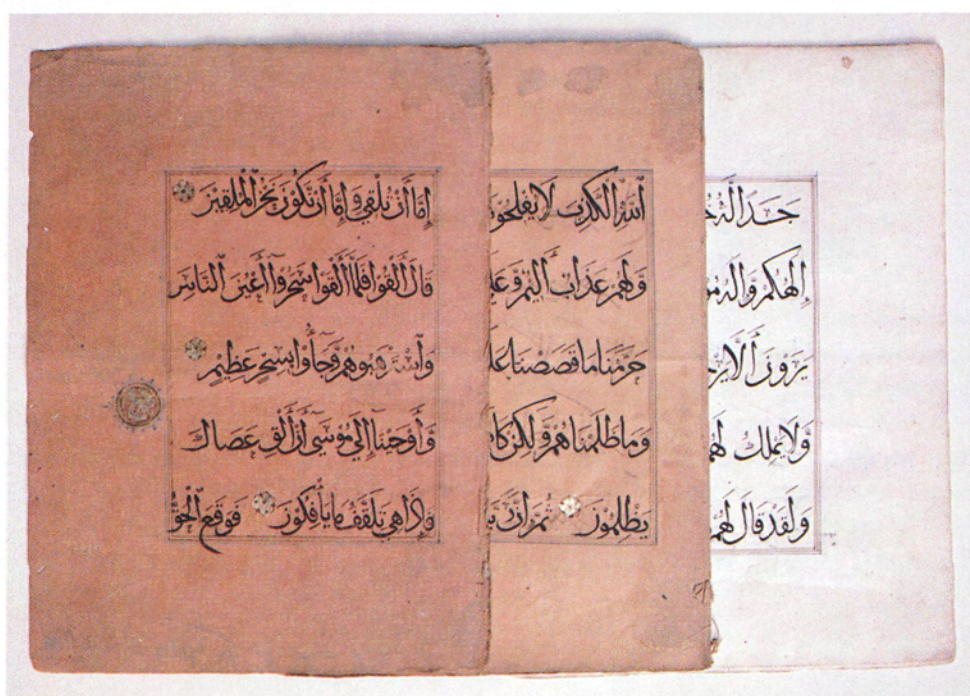 إِمَّا أَنْ تُلْقِيَ وَإِمَّا أَنْ نَكُونَ نَحْنُ الْمُلْقِينَ
قَالَ أَلْقُوا فَلَمَّا أَلْقَوْا سَحَرُوا أَعْيُنَ النَّاسِ
وَاسْتَرْهَبُوهُمْ وَجَاؤُا بِسِحْرٍ عَظِيمٍ
وَأَوْحَيْنَا إِلَى مُوسَى أَنْ أَلْقِ عَصَاكَ
فَإِذَا هِيَ تَلْقَفُ مَا يَأْفِكُونَ فَوَقَعَ الْحَقُّ
اللهِ الْكَذِبَ لَا يُفْلِحُونَ
وَلَهُمْ عَذَابٌ أَلِيمٌ
حَرَّمْنَا مَا قَصَصْنَا
وَمَا ظَلَمْنَاهُمْ وَلَكِنْ
يَظْلِمُونَ ثُمَّ إِنَّ
جَسَدًا لَهُ
إِلَهُكُمْ وَإِلَهُ
يَرَوْنَ أَلَّا
وَلَا يَمْلِكُ لَهُمْ
وَلَقَدْ قَالَ لَهُمْ